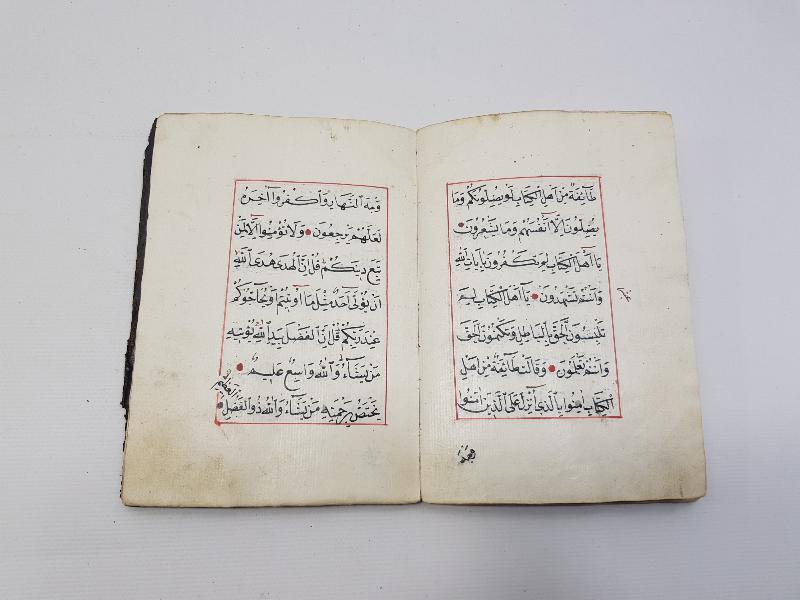 طَآئِفَةٌ مِنْ اَهْلِ الْكِتَابِ لَوْ يُضِلُّونَكُمْ وَمَا
يُضِلُّونَ اِلَّا اَنْفُسَهُمْ وَمَا يَشْعُرُونَ
يَا اَهْلَ الْكِتَابِ لِمَ تَكْفُرُونَ بِاٰيَاتِ اللّٰهِ
وَاَنْتُمْ تَشْهَدُونَ يَا اَهْلَ الْكِتَابِ لِمَ
تَلْبِسُونَ الْحَقَّ بِالْبَاطِلِ وَتَكْتُمُونَ الْحَقَّ
وَاَنْتُمْ تَعْلَمُونَ وَقَالَتْ طَآئِفَةٌ مِنْ اَهْلِ
الْكِتَابِ اٰمِنُوا بِالَّذِى اُنْزِلَ عَلَى الَّذِينَ اٰمَنُوا
وَجْهَ النَّهَارِ وَاكْفُرُوا اٰخِرَهُ
لَعَلَّهُمْ يَرْجِعُونَ وَلَا تُؤْمِنُوا اِلَّا لِمَنْ
تَبِعَ دِينَكُمْ قُلْ اِنَّ الْهُدٰى هُدَى اللّٰهِ
اَنْ يُؤْتٰى اَحَدٌ مِثْلَ مَا اُوتِيتُمْ اَوْ يُحَاجُّوكُمْ
عِنْدَ رَبِّكُمْ قُلْ اِنَّ الْفَضْلَ بِيَدِ اللّٰهِ يُؤْتِيهِ
مَنْ يَشَآءُ وَاللّٰهُ وَاسِعٌ عَلِيمٌ
يَخْتَصُّ بِرَحْمَتِهِ مَنْ يَشَآءُ وَاللّٰهُ ذُو الْفَضْلِ
الْعَظِيمِ